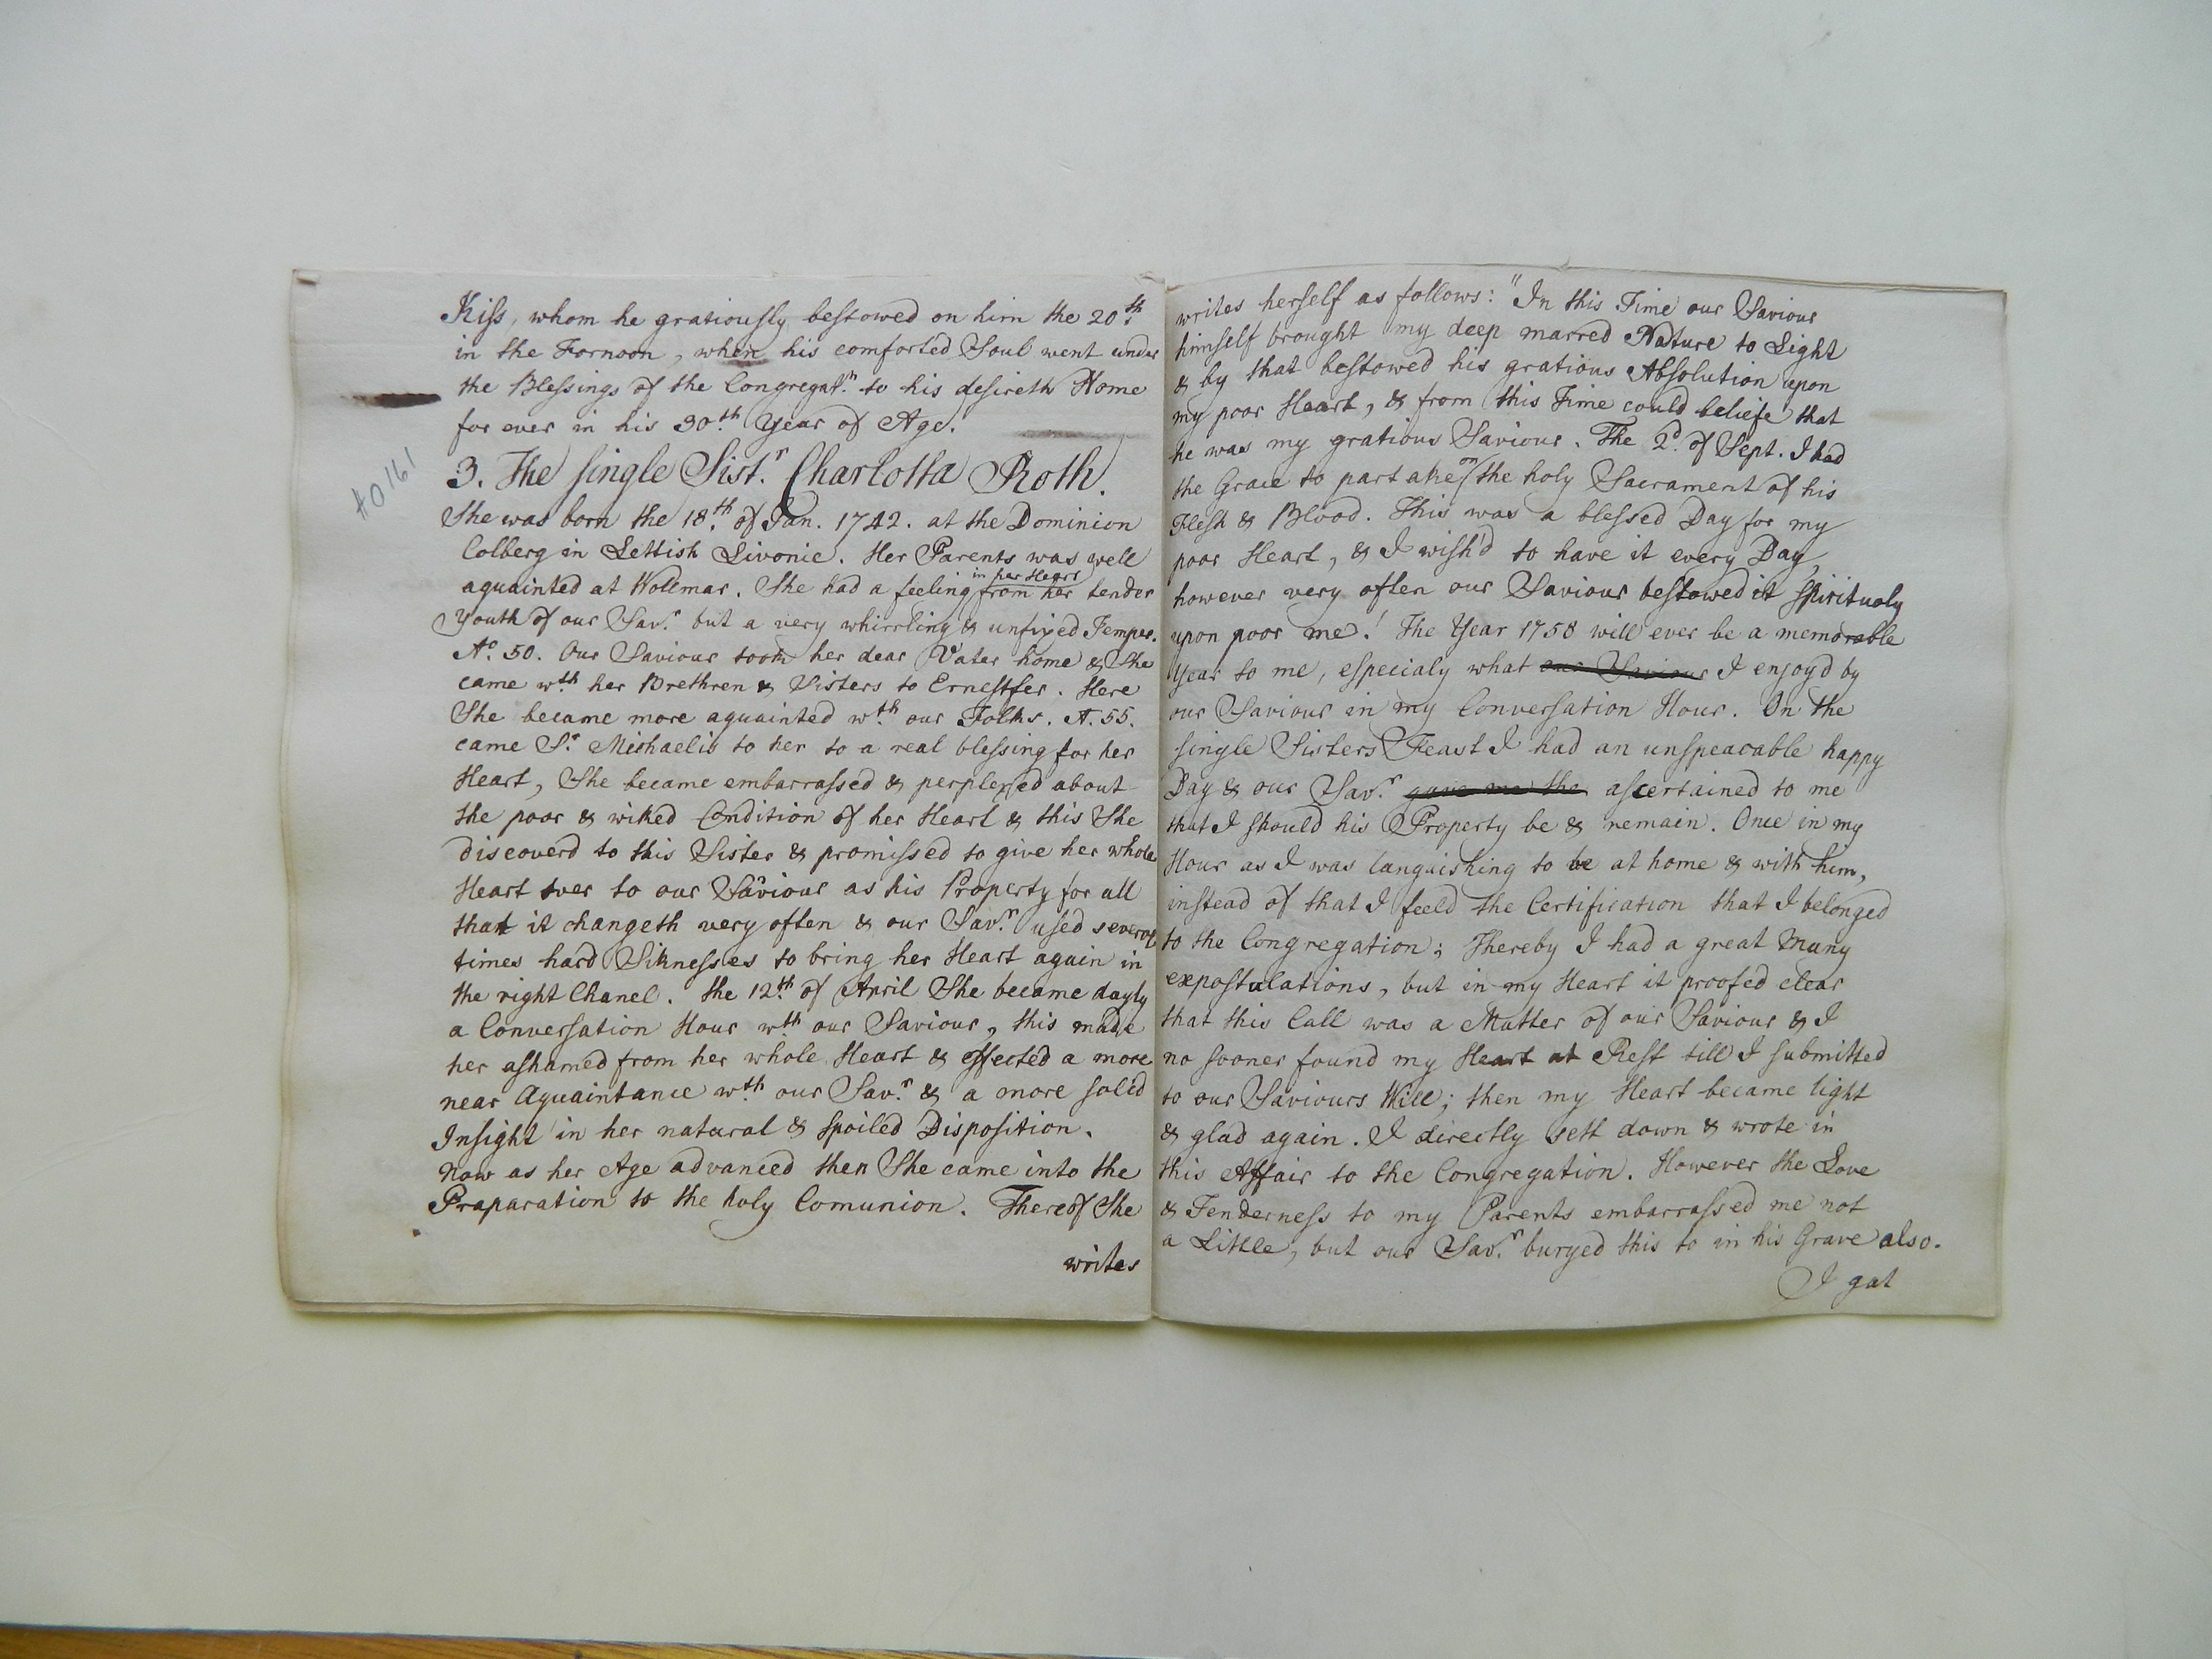 Kiss, whom he gratiously bestowed on him the 20th.
in the Fornoon, when his comforted Soul went under
the Blessings of the Congregatn. to his desireth Home
for ever in his 30th. Year of Age.
#0161
3. The single Sistr. Charlotta Roth.
She was born the 18th. of Jan. 1742. at the Dominion
Colberg in Lettish Livonie. Her Parents was well
in her Heart
aquainted at Wollmar. She had a feeling from her tender
Youth of our Savr. but a very whirrling & unfixed Temper.
Ao. 50. Our Saviour took her dear Vater home & She
came wth. her Brethren & Sisters to Ernestfer. Here
She became more aquainted wth. our Folks. A. 55.
came Sr. Michaelis to her to a real blessing for her
Heart, She became embarrassed & perplexed about
the poor & wiked Condition of her Heart & this She
discoverd to this Sister & promissed to give her whole
Heart over to our Saviour as his Property for all
that it changeth very often & our Savr. used several
times hard Siknesses to bring her Heart again in
the right Chanel. the 12th. of April She became dayly
a Conversation Hour wth. our Saviour, this made
her ashamed from her whole Heart & effected a more
near Aquaintance wth. our Savr. & a more solid
Insight in her natural & spoiled Disposition.
Now as her Age advanced then She came into the
Praparation to the holy Comunion. Thereof She
writes
writes herself as follows: "In this Time our Saviour
himself brought my deep marred Nature to Light
& by that bestowed his gratious Absolution upon
my poor Heart, & from this Time could beliefe that
he was my gratious Saviour. The 2d. of Sept. I had
the Grace to partake on the holy Sacrament of his
Flesh & Blood. This was a blessed Day for my
poor Heart, & I wish'd to have it every Day,
however very often our Saviour bestowed it spiritualy
upon poor me! The Year 1758 will ever be a memorable
Year to me, especialy what our Saviour I enjoy'd by
our Saviour in my Conversation Hour. On the
single Sisters Feast I had an unspeacable happy
Day & our Savr. gave me the ascertained to me
that I should his Property be & remain. Once in my
Hour as I was languishing to be at home & with him,
instead of that I feeld the Certification that I belonged
to the Congregation; Thereby I had a great many
expostulations, but in my Heart it proofed clear
that this Call was a Matter of our Saviour & I
no sooner found my Heart at Rest till I submitted
to our Saviours Will; then my Heart became light
& glad again. I directly sett down & wrote in
this Affair to the Congregation. However the Love
& Tenderness to my Parents embarrassed me not
a Little, but our Savr. buryed this to in his Grave also.
I gat